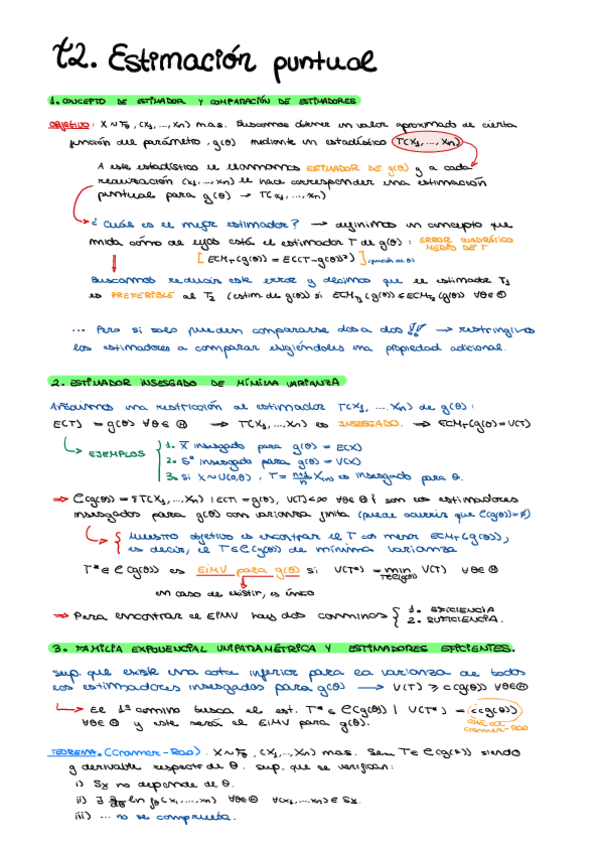 t2. Estimación puntual
1. CONCEPTO DE ESTIMADOR Y COMPARACIÓN DE ESTIMADORES
OBJETIVO: X ~ Fθ, (X1, ..., Xn) m.a.s. Buscamos obtener un valor aproximado de cierta
función del parámetro, g(θ) mediante un estadístico T(X1, ..., Xn)
A este estadístico le llamamos ESTIMADOR DE g(θ) y a cada
realización (x1, ..., xn) le hace corresponder una estimación
puntual para g(θ) → T(x1, ..., xn)
¿Cuál es el mejor estimador? → definimos un concepto que
mida cómo de lejos está el estimador T de g(θ): ERROR CUADRÁTICO
MEDIO DE T
[ECM_T(g(θ)) = E((T-g(θ))²)] (función de θ)
Buscamos reducir este error y decimos que el estimador T1
es PREFERIBLE al T2 (estim. de g(θ)) si ECM_T1(g(θ)) ≤ ECM_T2(g(θ)) ∀θ∈Θ
... Pero si solo pueden compararse dos a dos!! → restringimos
los estimadores a comparar exigiéndoles una propiedad adicional.
2. ESTIMADOR INSESGADO DE MÍNIMA VARIANZA
Añadimos una restricción al estimador T(X1, ... Xn) de g(θ):
E(T) = g(θ) ∀θ∈Θ → T(X1, ..., Xn) es INSESGADO. → ECM_T(g(θ)) = V(T)
EJEMPLOS
1. X̄ insesgado para g(θ) = E(X)
2. S² insesgado para g(θ) = V(X)
3. Si X~U(0,θ), T = n+1/n X(n) es insesgado para θ.
⇒ C(g(θ)) = {T(X1, ..., Xn) | E(T) = g(θ), V(T)<∞ ∀θ∈Θ} son los estimadores
insesgados para g(θ) con varianza finita (puede ocurrir que C(g(θ))=∅)
Nuestro objetivo es encontrar el T con menor ECM_T(g(θ)),
es decir, el T∈C(g(θ)) de mínima varianza
T*∈C(g(θ)) es EIMV para g(θ) si V(T*) = min T∈C(g(θ)) V(T) ∀θ∈Θ
en caso de existir, es único
⇒ Para encontrar el EIMV hay dos caminos { 1. EFICIENCIA
2. SUFICIENCIA.
3. FAMILIA EXPONENCIAL UNIPARAMÉTRICA Y ESTIMADORES EFICIENTES.
sup. que existe una cota inferior para la varianza de todos
los estimadores insesgados para g(θ) → V(T) ≥ c(g(θ)) ∀θ∈Θ
El 1º camino busca el est. T*∈C(g(θ)) | V(T*) = c(g(θ))
∀θ∈Θ y este será el EIMV para g(θ).
cota de
Cramer-Rao
TEOREMA. (Cramer-Rao). X~Fθ, (X1, ..., Xn) mas. Sea T∈C(g(θ)) siendo
g derivable respecto de θ. sup. que se verifican:
i) Sx no depende de θ.
ii) ∃ ∂/∂θ ln fθ(x1, ..., xn) ∀θ∈Θ ∀(x1, ..., xn)∈Sx.
iii) ... no se comprueba.